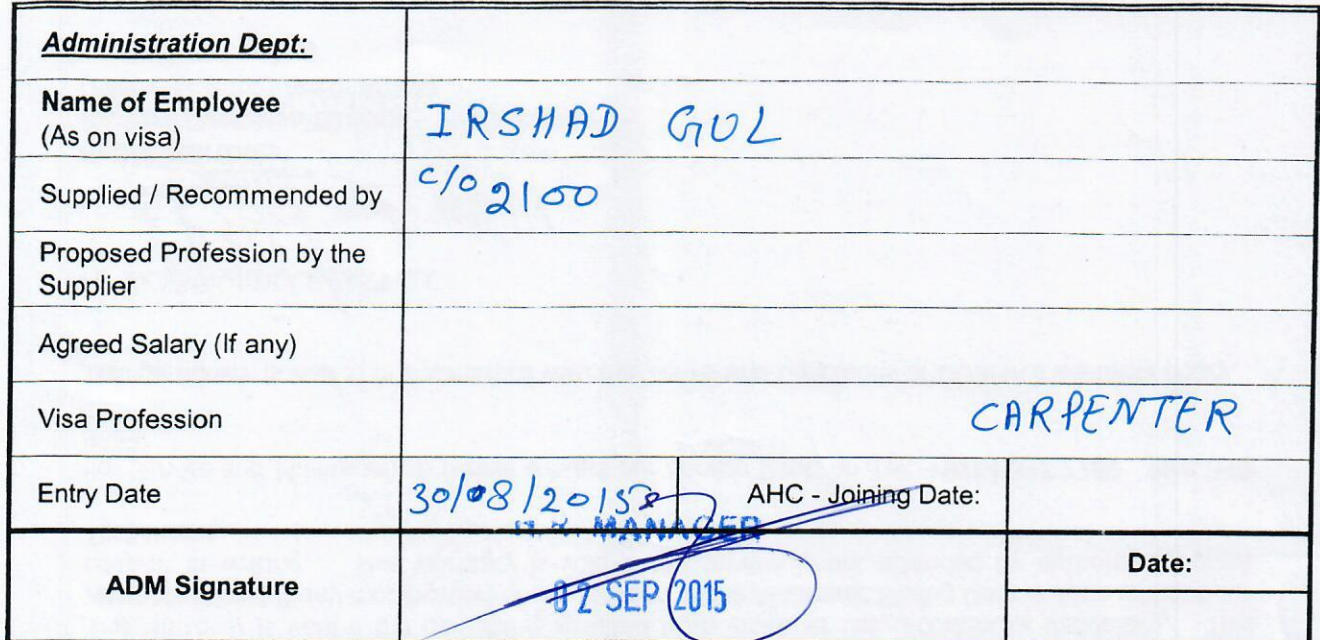 Administration Dept:
Name of Employee IRSHAD GUL
(As on visa)
Supplied / Recommended by c/o 2100
Proposed Profession by the
Supplier
Agreed Salary (If any)
Visa Profession CARPENTER
Entry Date 30/08/2015 AHC - Joining Date:
H.R. MANAGER
ADM Signature 02 SEP 2015 Date: